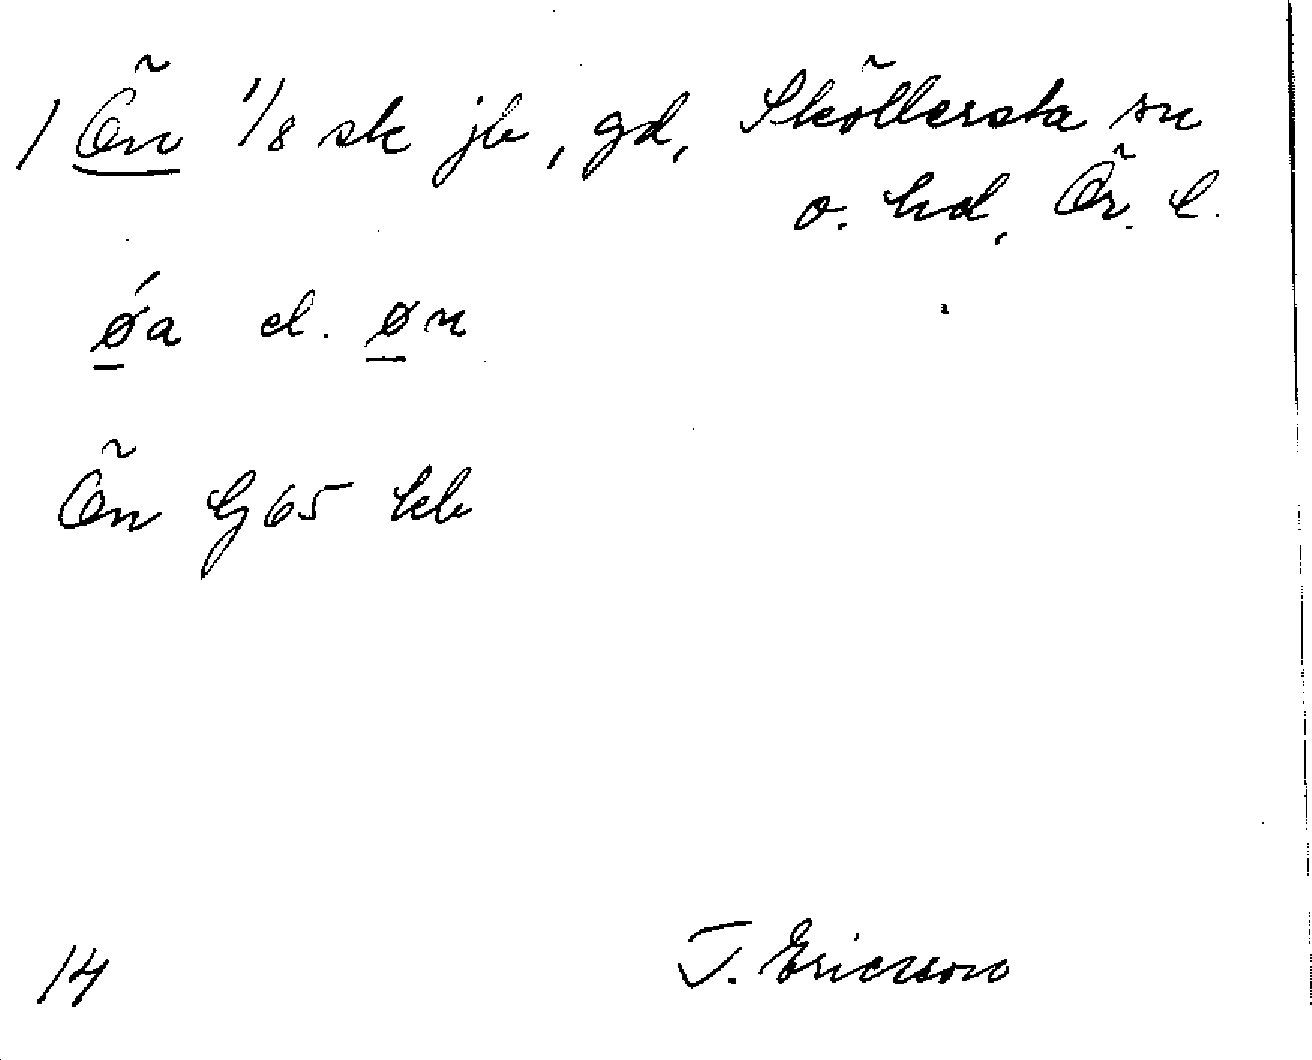 1 Ön 1/8 sk jb, gd, Sköllersta sn
o. hd, Ör. l.
ǿa el. øn
Ön G65 kb
14 T. Ericsson